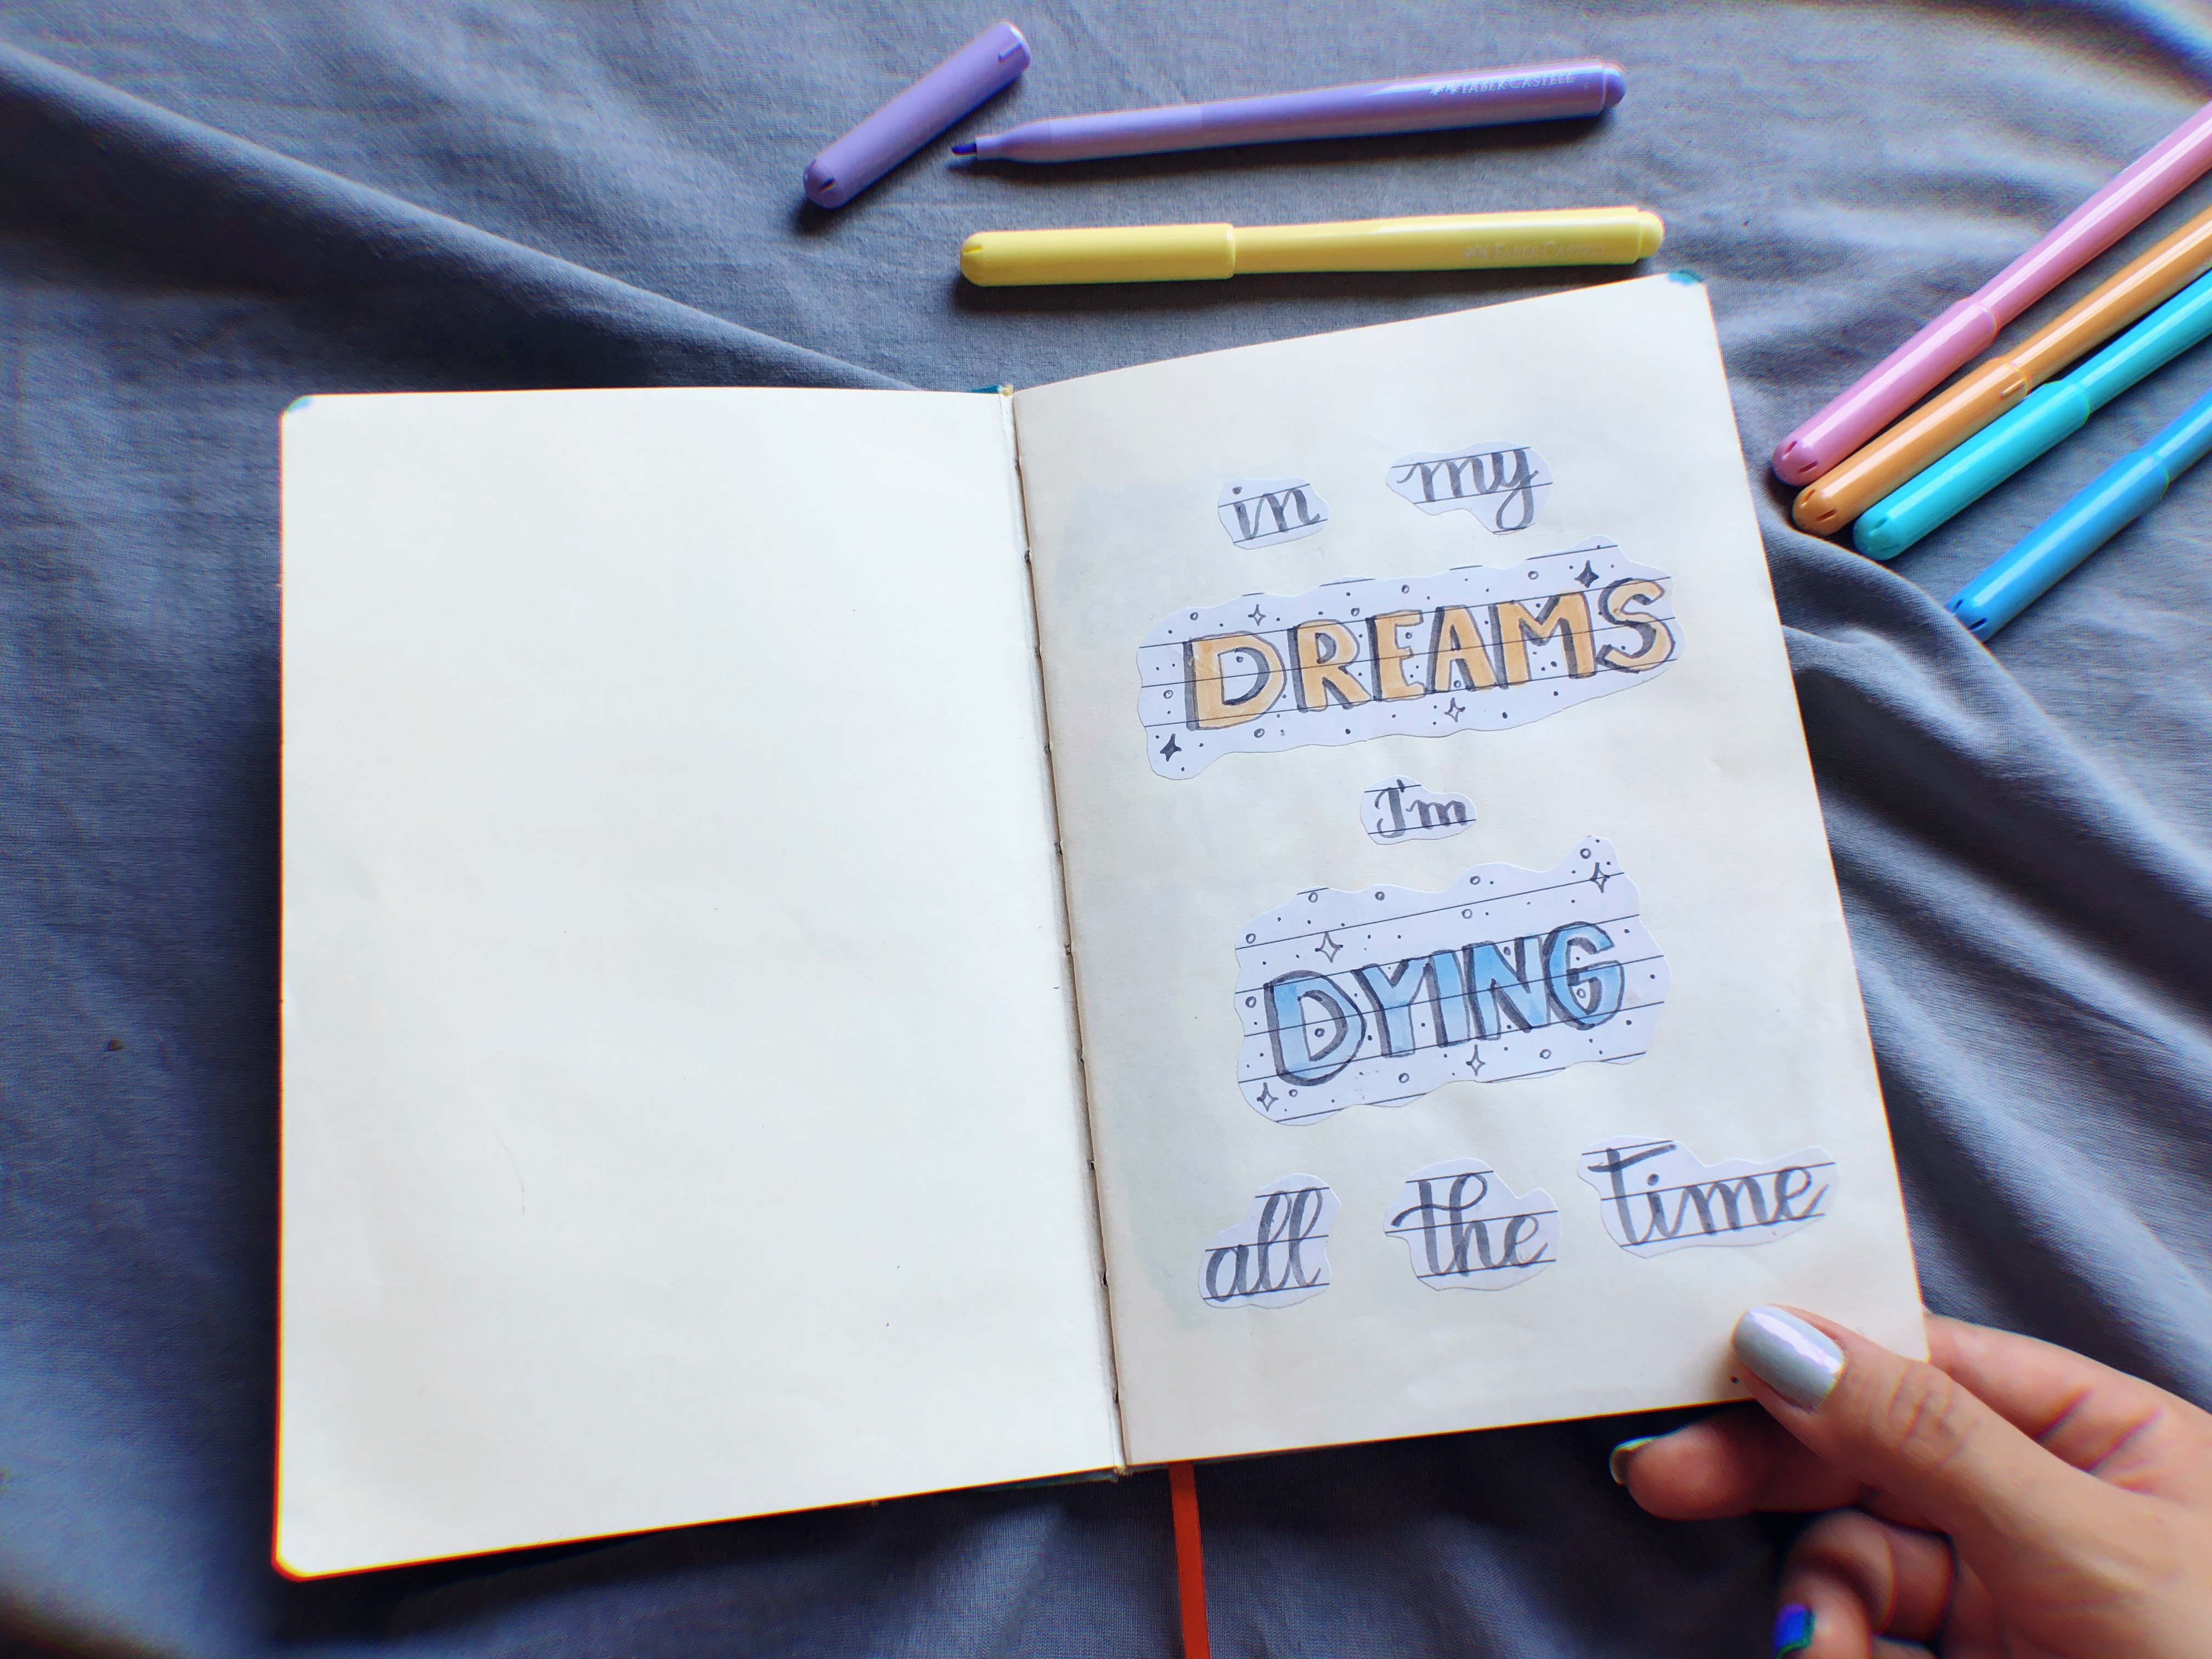 FABER-CASTELL
in my
DREAMS
I'm
DYING
all the time